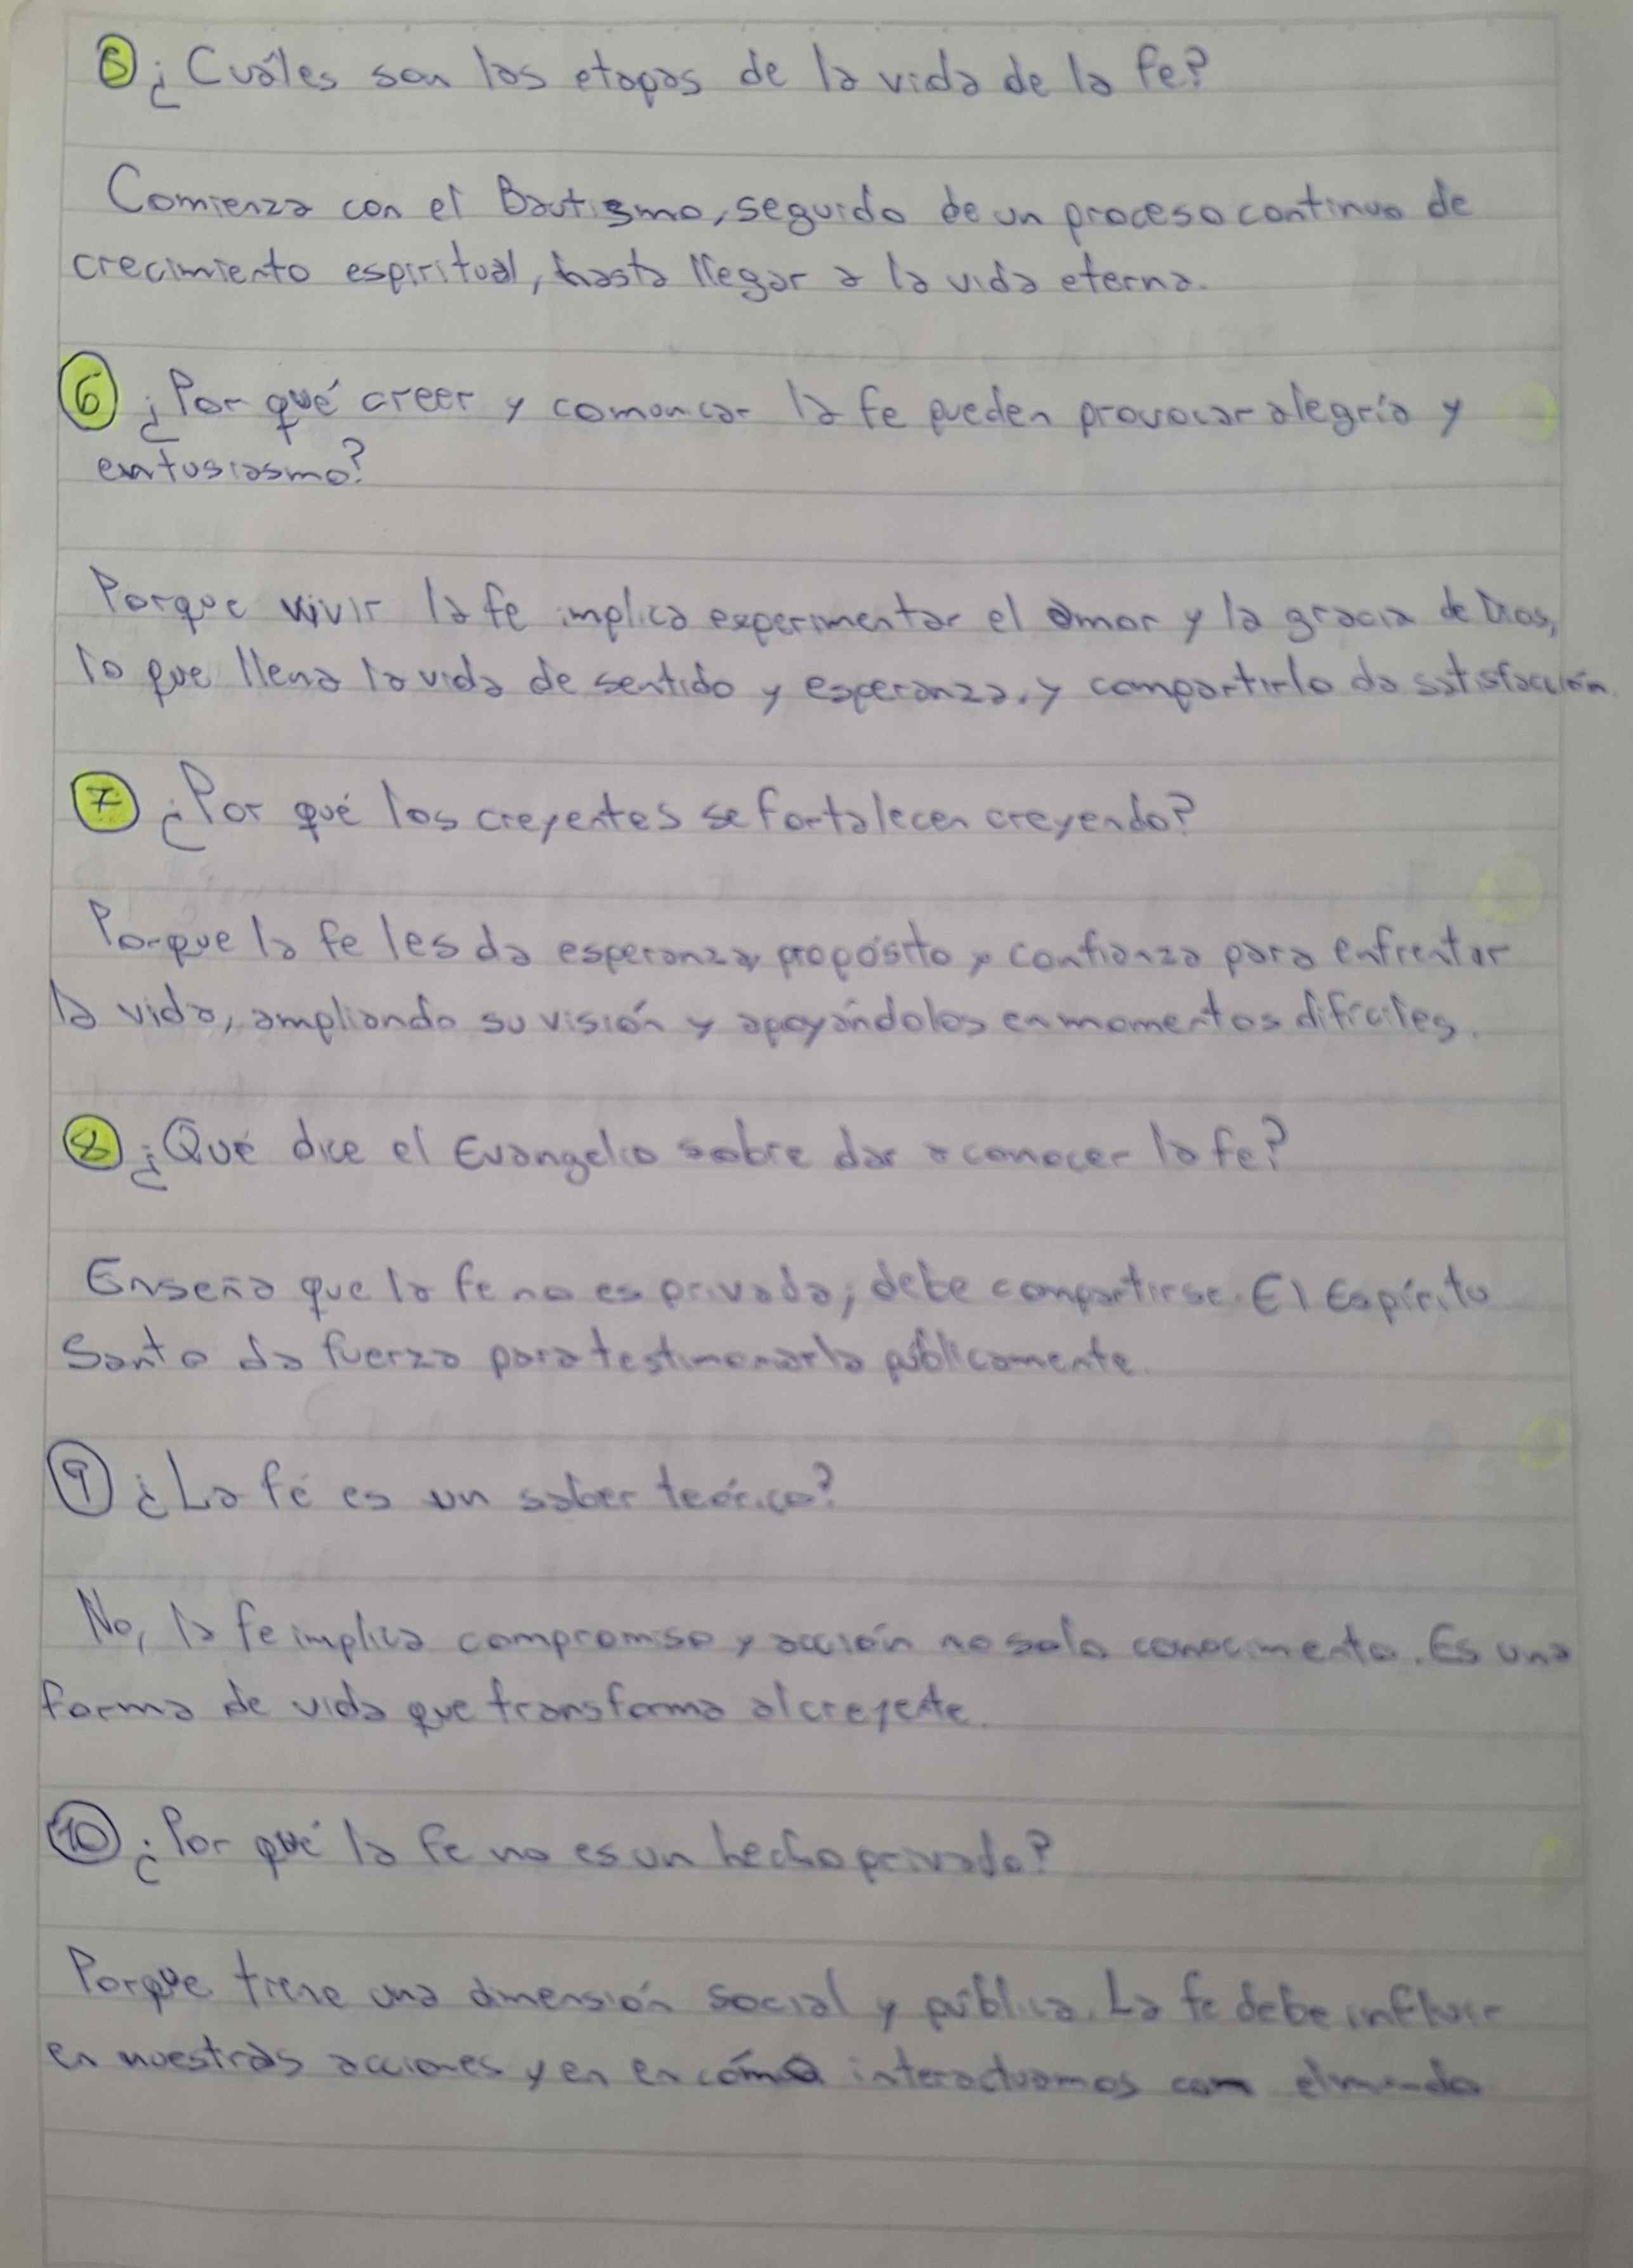 5 ¿Cuáles son las etapas de la vida de la fe?
Comienza con el Bautismo, seguido de un proceso continuo de
crecimiento espiritual, hasta llegar a la vida eterna.
6 ¿Por qué creer y comunicar la fe pueden provocar alegría y
entusiasmo?
Porque vivir la fe implica experimentar el amor y la gracia de Dios,
lo que llena la vida de sentido y esperanza, y compartirlo da satisfacción.
7 ¿Por qué los creyentes se fortalecen creyendo?
Porque la fe les da esperanza, propósito y confianza para enfrentar
la vida, ampliando su visión y apoyándolos en momentos difíciles.
8 ¿Qué dice el Evangelio sobre dar a conocer la fe?
Enseña que la fe no es privada; debe compartirse. El Espíritu
Santo da fuerza para testimoniarla públicamente.
9 ¿La fé es un saber teórico?
No, la fe implica compromiso y acción no solo conocimento. Es una
forma de vida que transforma al creyente.
10 ¿Por qué la fe no es un hecho privado?
Porque tiene una dimensión social y pública. La fe debe influir
en nuestras acciones y en en cómo interactuamos con el mundo